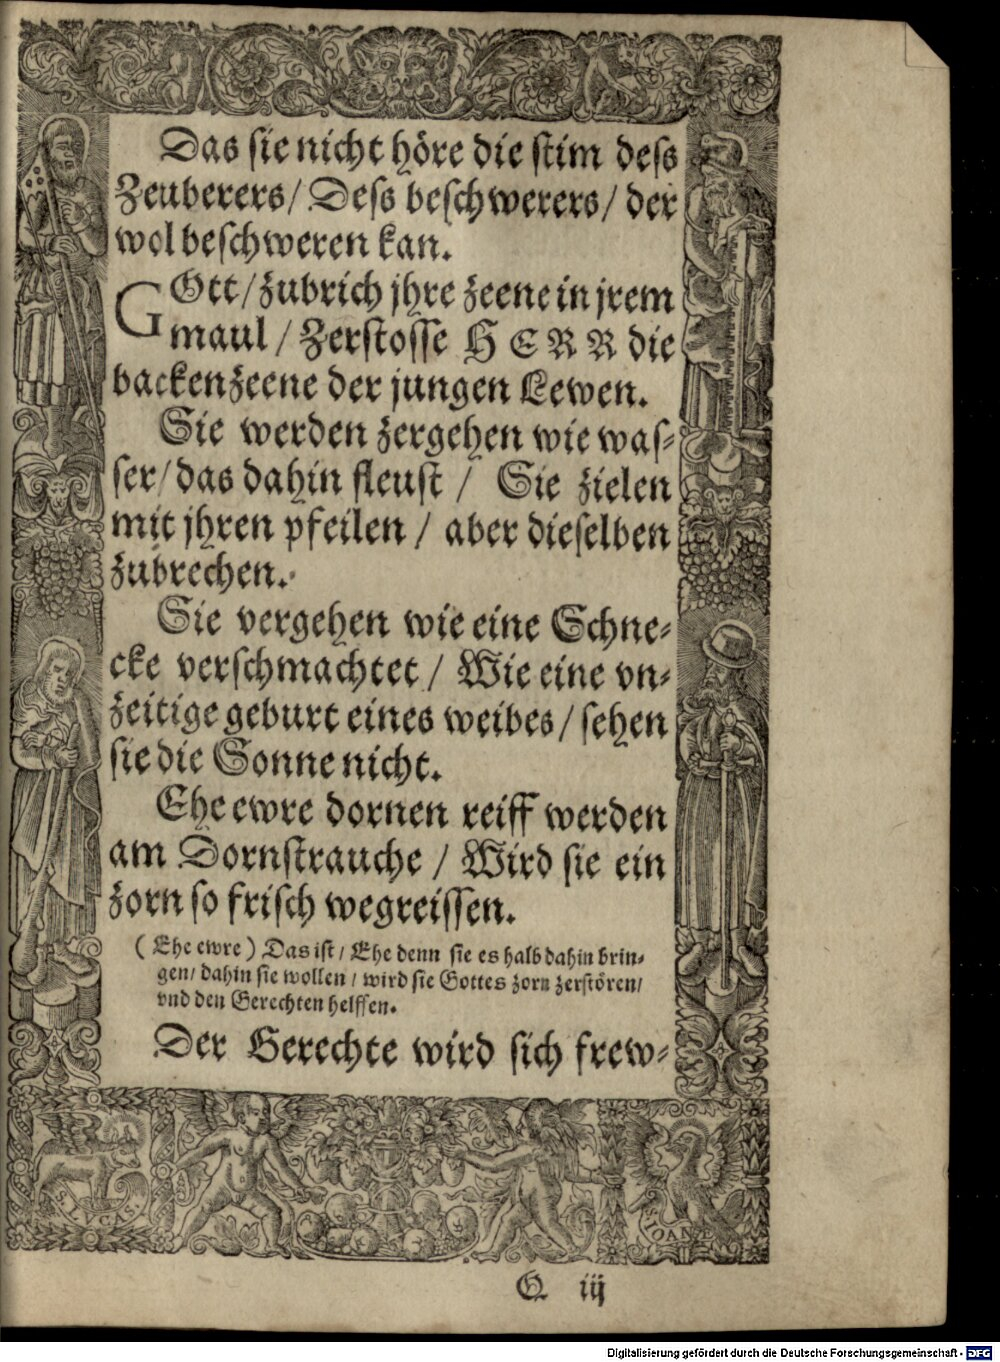 Das sie nicht höre die stim dess
Zeuberers/ Dess beschwerers/ der
wol beschweren kan.
GOtt/ zubrich jhre zeene in jrem
maul / Zerstosse HERR die
backenzeene der jungen Lewen.
Sie werden zergehen wie was-
ser/ das dahin fleust / Sie zielen
mit jhren pfeilen / aber dieselben
zubrechen.
Sie vergehen wie eine Schne-
cke verschmachtet / Wie eine vn-
zeitige geburt eines weibes / sehen
sie die Sonne nicht.
Ehe ewre dornen reiff werden
am Dornstrauche / Wird sie ein
zorn so frisch wegreissen.
( Ehe ewre ) Das ist / Ehe denn sie es halb dahin brin-
gen/ dahin sie wollen / wird sie Gottes zorn zerstören/
vnd den Gerechten helffen.
Der Gerechte wird sich frew-
S. LVCAS.
S. IOANE
Q iij
Digitalisierung gefördert durch die Deutsche Forschungsgemeinschaft - DFG